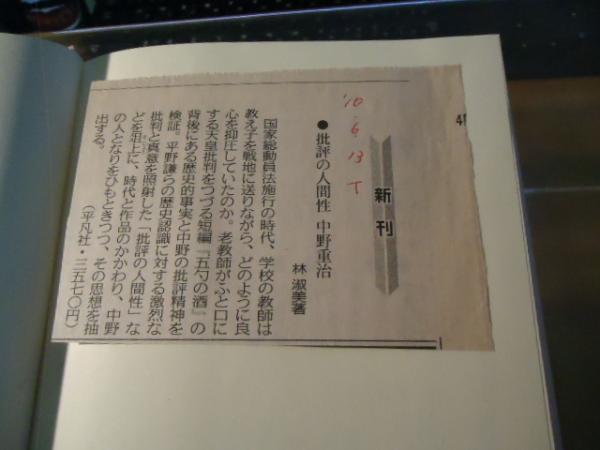 '10
6
13
T
新刊
●批評の人間性 中野重治
林 淑美著
国家総動員法施行の時代、学校の教師は
教え子を戦地に送りながら、どのように良
心を抑圧していたのか。老教師がふと口に
する天皇批判をつづる短編『五勺の酒』の
背後にある歴史的事実と中野の批評精神を
検証。平野謙らの歴史認識に対する激烈な
批判と真意を照射した「批評の人間性」な
どを俎上に、時代と作品のかかわり、中野
の人となりをひもときつつ、その思想を抽
出する。
(平凡社・三五七〇円)